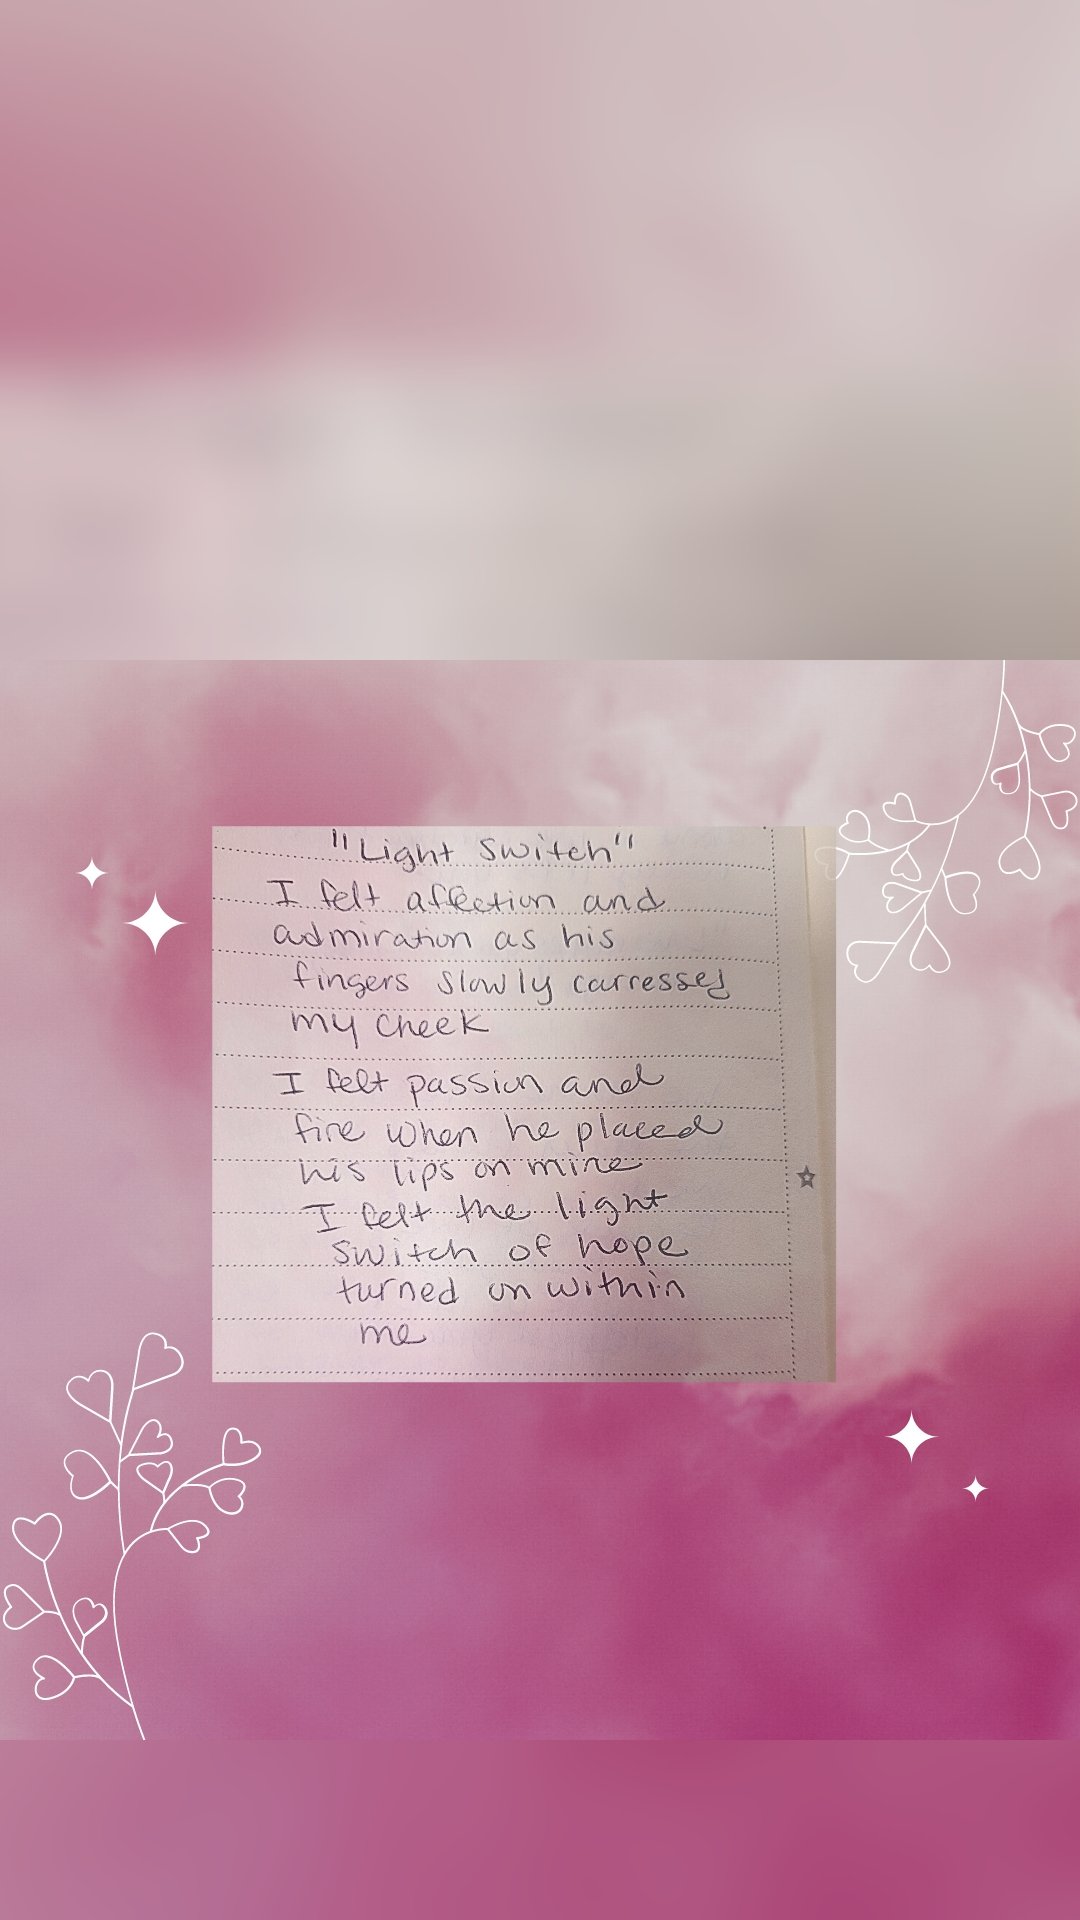 "Light Switch"
I felt affection and
admiration as his
fingers slowly carresses
my cheek
I felt passion and
fire when he placed
his lips on mine
I felt the light
switch of hope
turned on within
me